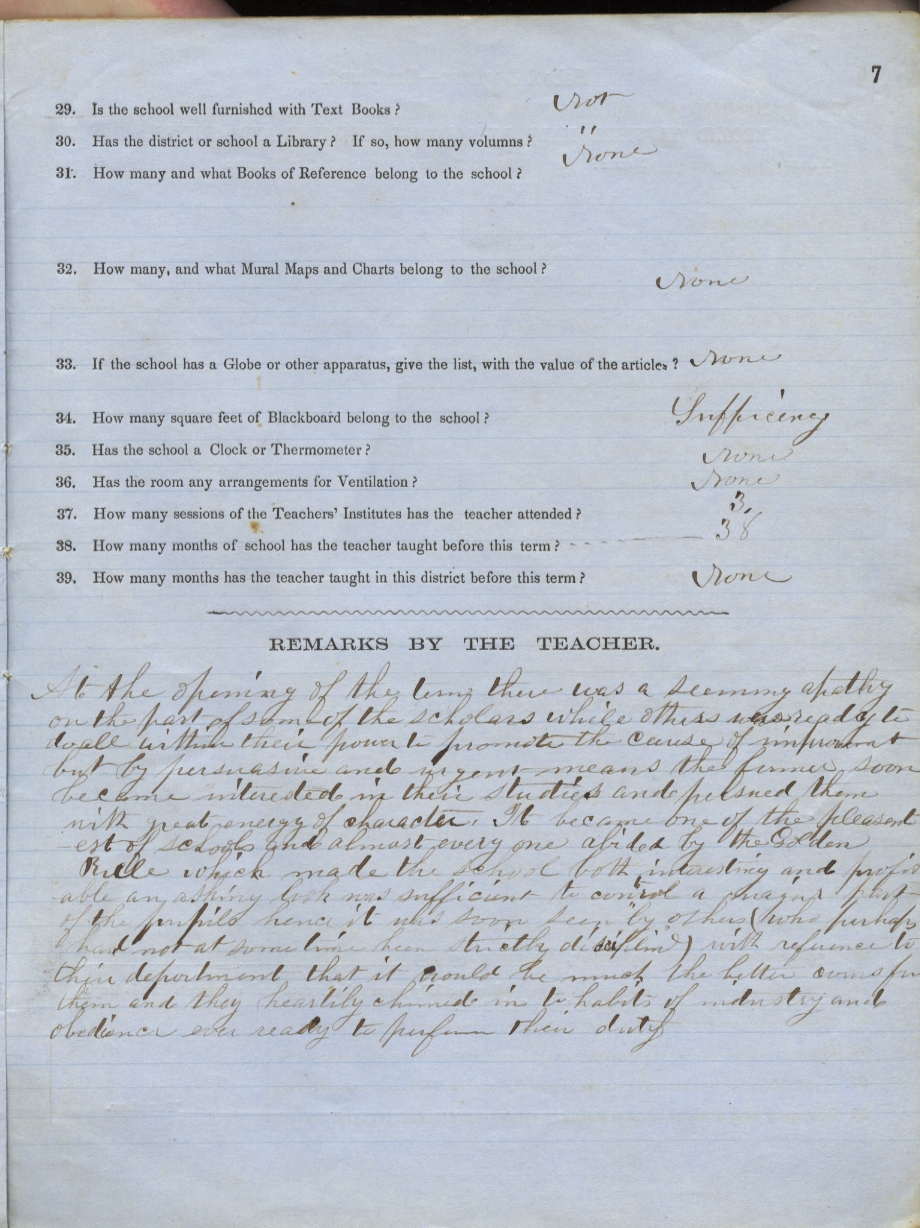 7
29. Is the school well furnished with Text Books? Not
30. Has the district or school a Library? If so, how many volumns? "
31. How many and what Books of Reference belong to the school? None
32. How many, and what Mural Maps and Charts belong to the school? None
33. If the school has a Globe or other apparatus, give the list, with the value of the articles? None
34. How many square feet of Blackboard belong to the school? Sufficiency
35. Has the school a Clock or Thermometer? None
36. Has the room any arrangements for Ventilation? None
37. How many sessions of the Teachers' Institutes has the teacher attended? 3,
38. How many months of school has the teacher taught before this term? 38
39. How many months has the teacher taught in this district before this term? None
REMARKS BY THE TEACHER.
At the opening of the term there was a seeming apathy
on the part of some of the scholars while others were ready to
do all within their power to promote the cause of
but by persuasive and urgent means the former soon
became interested in their studies and persued them
with great energy of character. It became one of the pleasant
-est of schools and almost every one abided by the Golden
Rule which made the school both interesting and profit
able an asking look was sufficient to control a major part
of the pupils hence it was soon seen by others (who perhaps
had not at some time been strictly ) with reference to
their department that it would be much the better course for
them and they heartily chimed in to habits of industry and
obedience ever ready to perform their duty